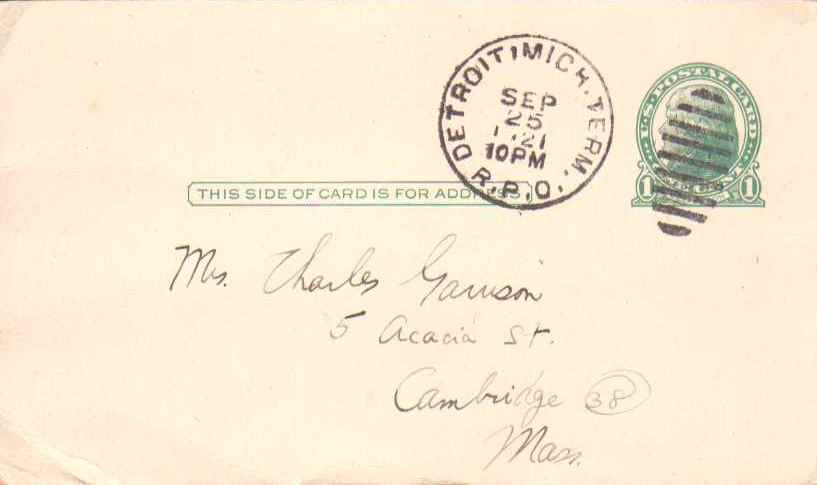 DETROIT, MICH. TERM.
SEP
25
'21
10 PM
R.P.O.
U.S. POSTAL CARD
1 CENT 1
THIS SIDE OF CARD IS FOR ADDRESS
Mrs. Charles Garrison
5 Acacia St.
Cambridge 38
Mass.